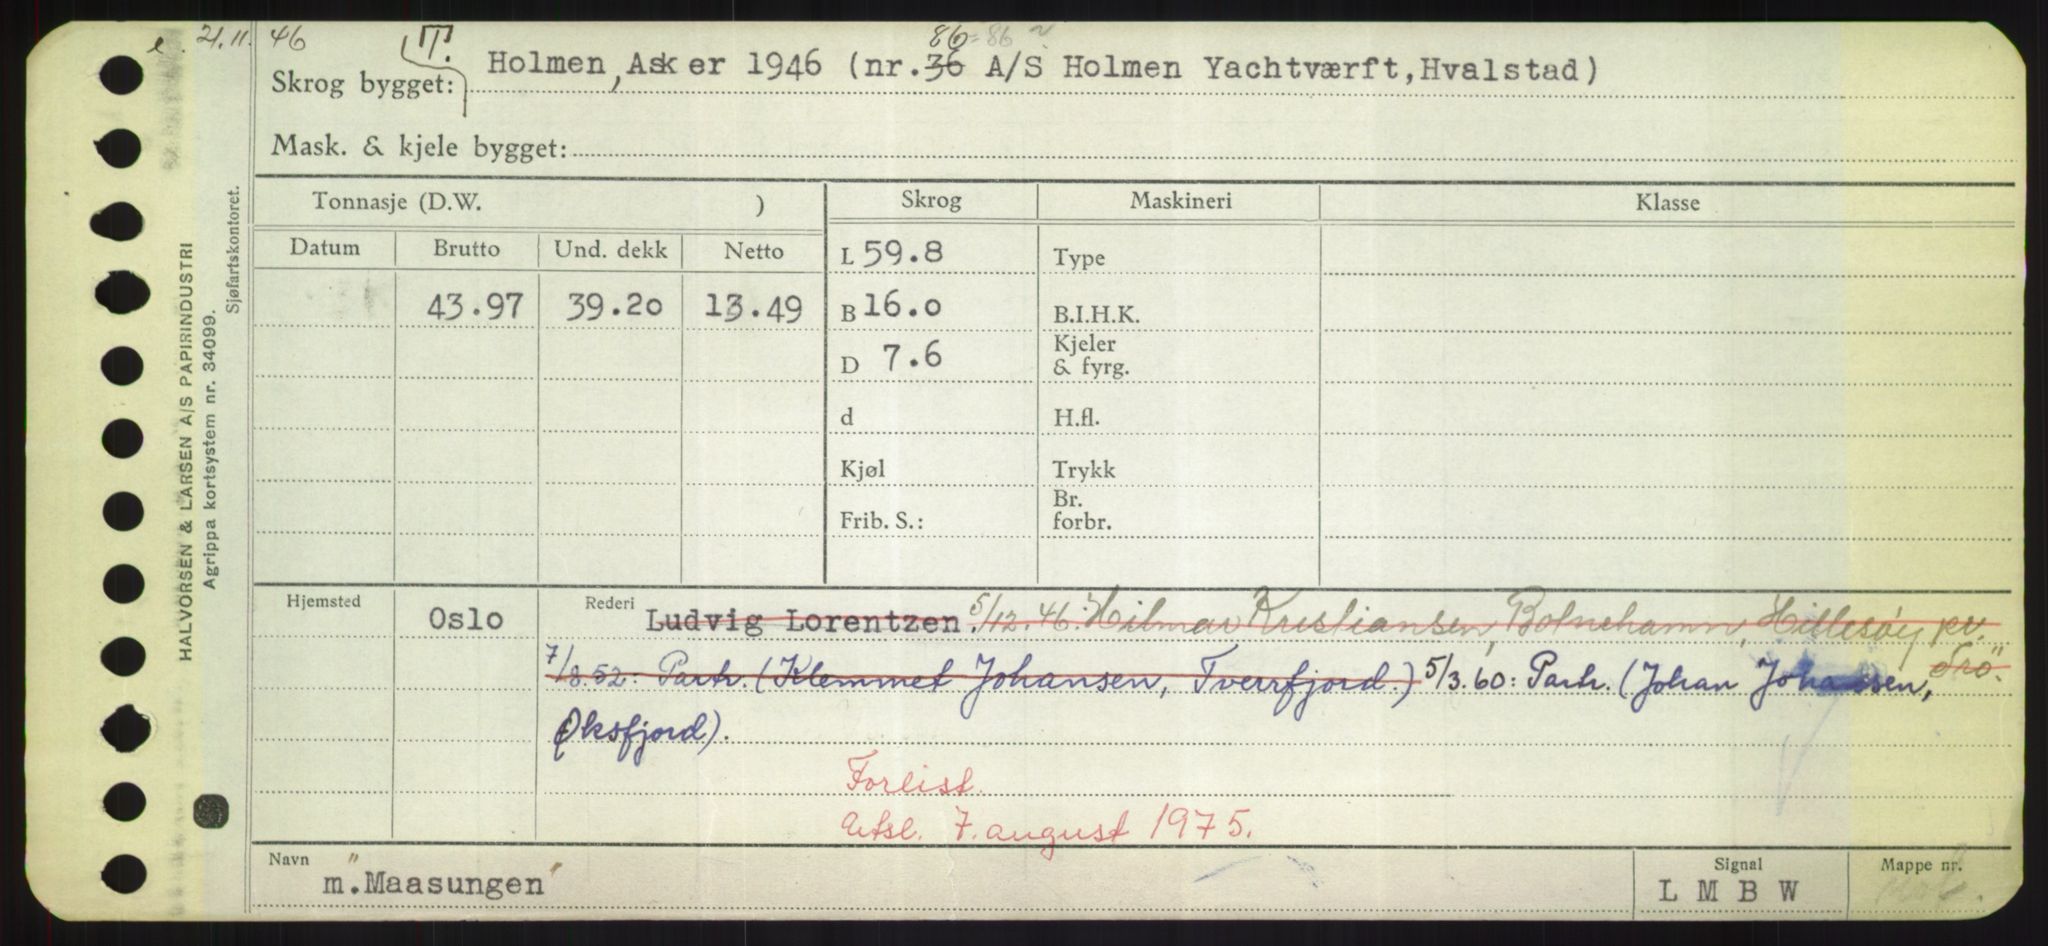 21.11. 46
T. 86 = 86
Skrog bygget: Holmen, Asker 1946 (nr. 36 A/S Holmen Yachtværft, Hvalstad)
Mask. & kjele bygget:
Tonnasje (D.W. ) Skrog Maskineri Klasse
Datum Brutto Und. dekk Netto L 59.8 Type
43.97 39.20 13.49 B 16.0 B.I.H.K.
D 7.6 Kjeler & fyrg.
d H.fl.
Kjøl Trykk
Frib. S.: Br. forbr.
Hjemsted Oslo Rederi Ludvig Lorentzen. 5/12.46: Hilmar Kristiansen, Botnehamn, Hillesøy pr. Tro."
7/8.52: Partr. (Klemmet Johansen, Tverrfjord.) 5/3.60: Partr. (Johan Johansen,
Øksfjord).
Forlist.
Utsl. 7. august 1975.
Navn m. "Maasungen" Signal L M B W Mappe nr.
HALVORSEN & LARSEN A/S PAPIRINDUSTRI
Agrippa kortsystem nr. 34099.
Sjøfartskontoret.